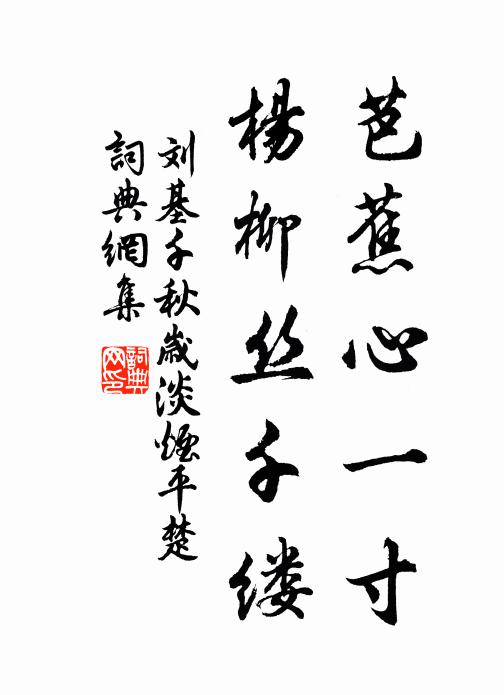 芭蕉心一寸
楊柳丝千缕
刘基千秋歲淡煙平楚
詞典網集
詞典网印